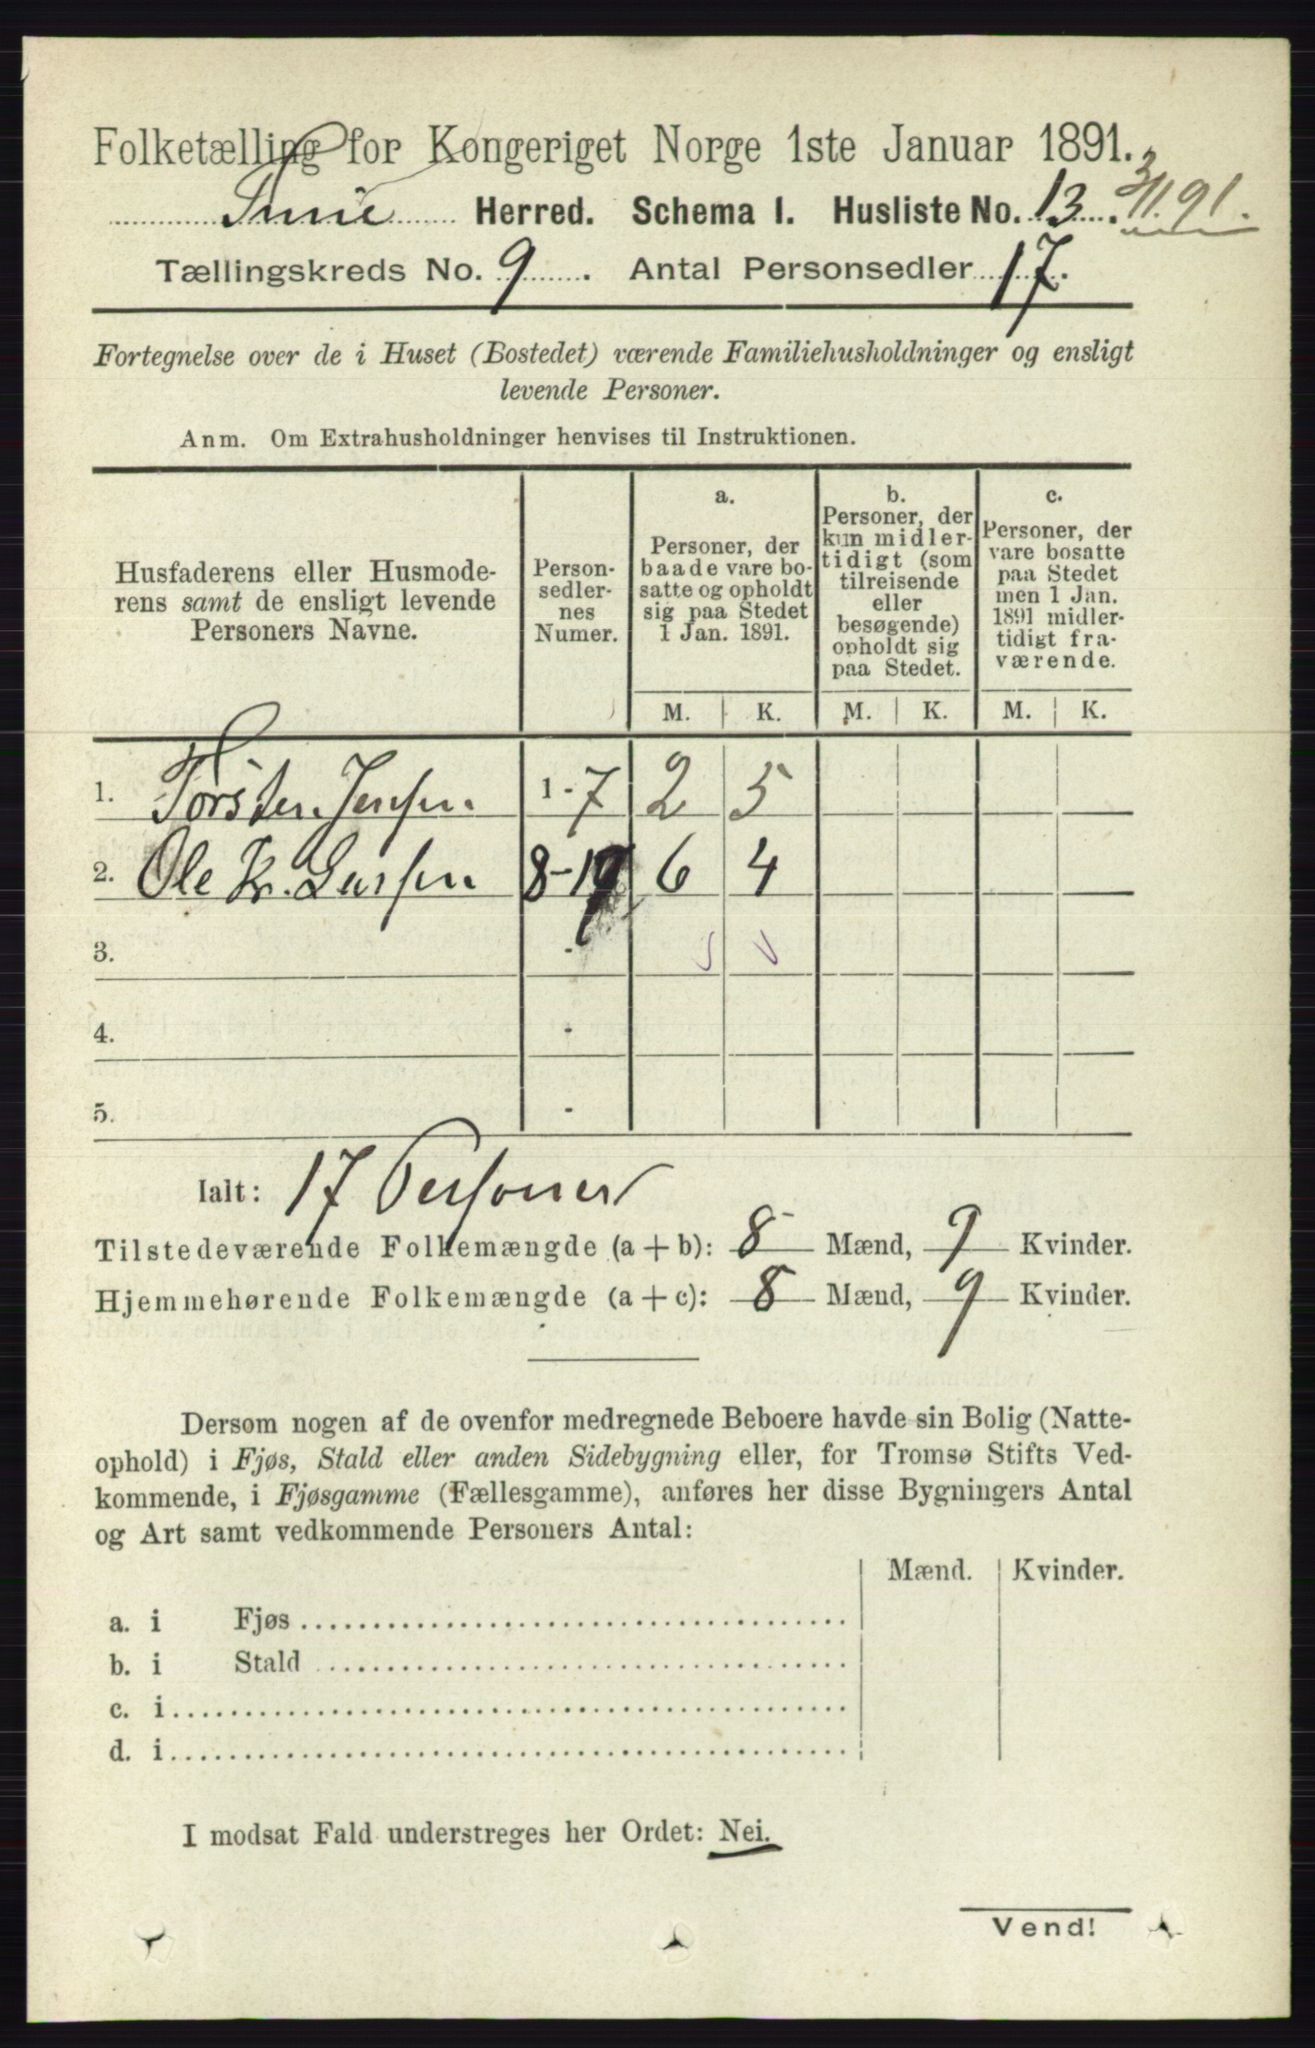 Folketælling for Kongeriget Norge 1ste Januar 1891.
Herred. Schema I. Husliste No. 13. 3/1 1.91.
Tællingskreds No. 9. Antal Personsedler 17.
Fortegnelse over de i Huset (Bostedet) værende Familiehusholdninger og ensligt
levende Personer.
Anm. Om Extrahusholdninger henvises til Instruktionen.
Husfaderens eller Husmode-
rens samt de ensligt levende
Personers Navne.
Person-
sedler-
nes
Numer.
a.
Personer, der
baade vare bo-
satte og opholdt
sig paa Stedet
1 Jan. 1891.
b.
Personer, der
kun midler-
tidigt (som
tilreisende
eller
besøgende)
opholdt sig
paa Stedet.
c.
Personer, der
vare bosatte
paa Stedet
men 1 Jan.
1891 midler-
tidigt fra-
værende.
M. K. M. K. M. K.
1. Torsten Jensen 1-7 2 5
2. Ole Kr. Larsen 8-17 6 4
3. -
4. -
5. -
Ialt: 17 Personer
Tilstedeværende Folkemængde (a + b): 8 Mænd, 9 Kvinder.
Hjemmehørende Folkemængde (a + c): 8 Mænd, 9 Kvinder.
Dersom nogen af de ovenfor medregnede Beboere havde sin Bolig (Natte-
ophold) i Fjøs, Stald eller anden Sidebygning eller, for Tromsø Stifts Ved-
kommende, i Fjøsgamme (Fællesgamme), anføres her disse Bygningers Antal
og Art samt vedkommende Personers Antal:
Mænd. Kvinder.
a. i Fjøs
b. i Stald
c. i
d. i
I modsat Fald understreges her Ordet: Nei.
Vend!